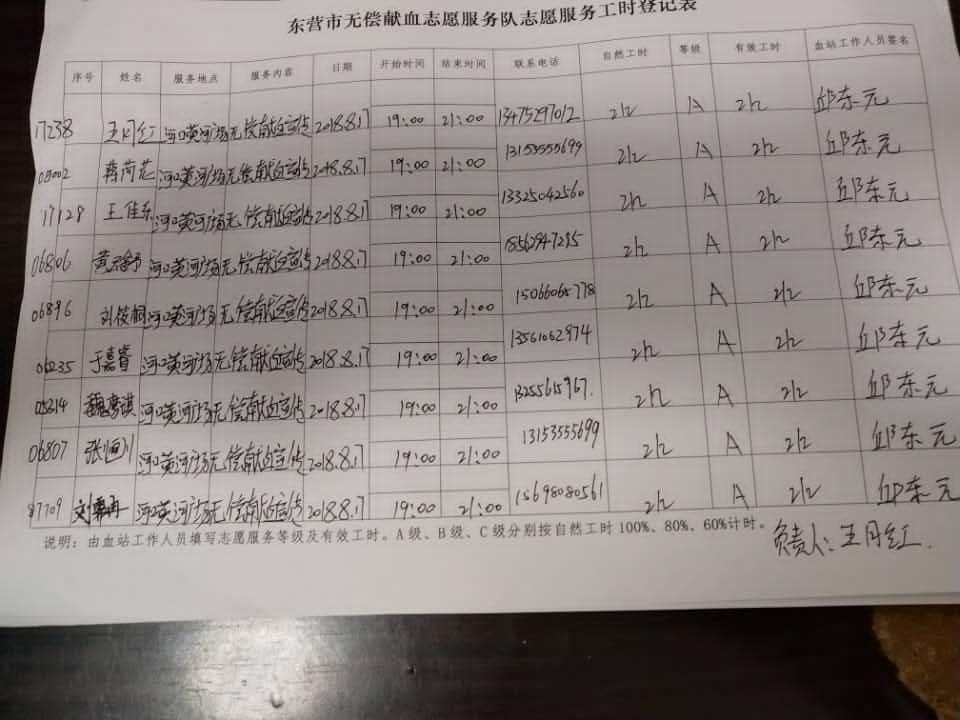 东营市无偿献血志愿服务队志愿服务工时登记表
序号 姓名 服务地点 服务内容 日期 开始时间 结束时间 联系电话 自然工时 等级 有效工时 血站工作人员签名
17238 王月红 河口黄河广场 无偿献血宣传 2018.8.17 19:00 21:00 13475297012 2h A 2h 邱东元
08002 蒋荷花 河口黄河广场 无偿献血宣传 2018.8.17 19:00 21:00 13153555699 2h A 2h 邱东元
17128 王佳乐 河口黄河广场 无偿献血宣传 2018.8.17 19:00 21:00 13325042560 2h A 2h 邱东元
06806 河口黄河广场 无偿献血宣传 2018.8.17 19:00 21:00 18562947295 2h A 2h 邱东元
06896 河口黄河广场 无偿献血宣传 2018.8.17 19:00 21:00 15066065778 2h A 2h 邱东元
06235 于嘉睿 河口黄河广场 无偿献血宣传 2018.8.17 19:00 21:00 13561062974 2h A 2h 邱东元
河口黄河广场 无偿献血宣传 2018.8.17 19:00 21:00 13255615967. 2h A 2h 邱东元
06807 河口黄河广场 无偿献血宣传 2018.8.17 19:00 21:00 13153555699 2h A 2h 邱东元
河口黄河广场 无偿献血宣传 2018.8.17 19:00 21:00 15698080561 2h A 2h 邱东元
说明：由血站工作人员填写志愿服务等级及有效工时。A级、B级、C级分别按自然工时100%、80%、60%计时。
负责人：王月红.